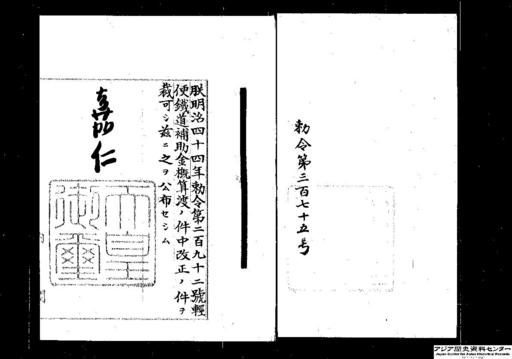 勅令第二百七十五号
朕明治四十四年勅令第二百九十二號輕
便鐵道補助金概算渡ノ件中改正ノ件ヲ
裁可シ茲ニ之ヲ公布セシム
嘉仁
天皇
御璽
アジア歴史資料センター
Japan Center for Asian Historical Records